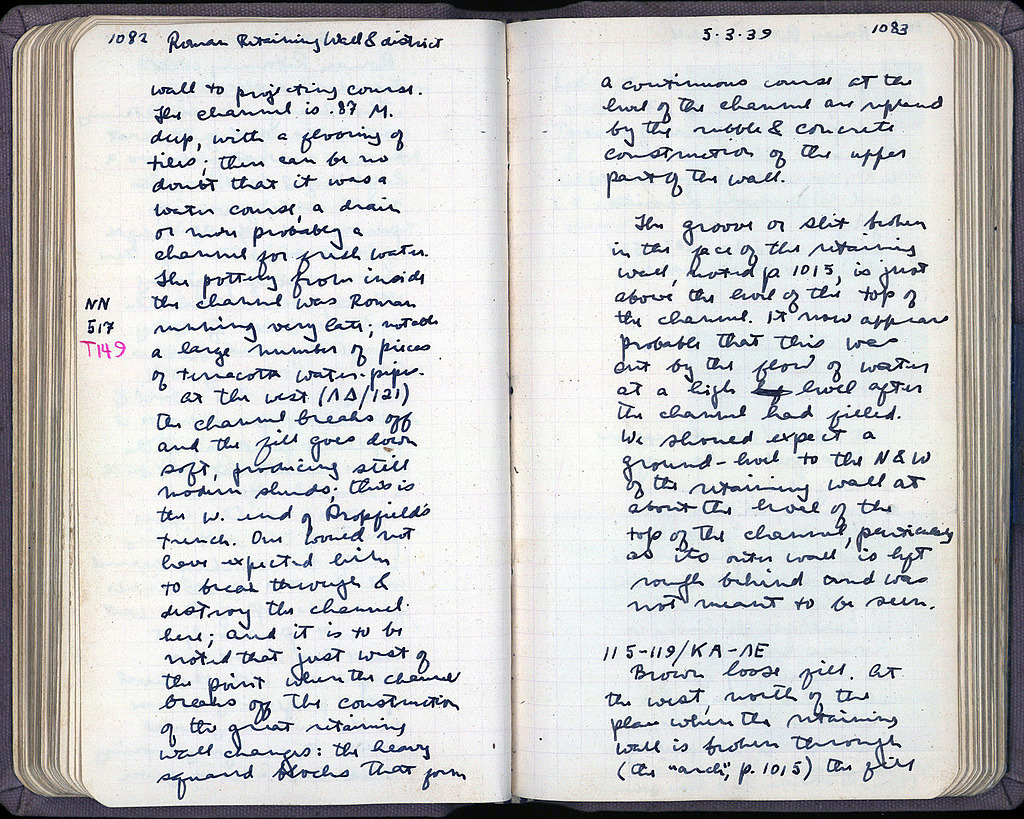 1082 Roman Retaining Wall & district
wall to projecting course.
The channel is .87 M.
deep, with a flooring of
tiles; there can be no
doubt that it was a
water course, a drain
or more probably a
channel for fresh water.
The pottery from inside
the channel was Roman
NN
517
T149
running very late; notable
a large number of pieces
of terracotta water-pipes.
At the west (ΛΔ/121)
the channel breaks off
and the fill goes down
soft, producing still
modern sherds; this is
the W. end of Dropfield's
trench. One would not
have expected him
to break through &
destroy the channel
here; and it is to be
noted that just west of
the point where the channel
breaks off the construction
of the great retaining
wall changes: the heavy
squared blocks that form
5.3.39 1083
a continuous course at the
level of the channel are replaced
by the rubble & concrete
construction of the upper
part of the wall.
The groove or slit broken
in the face of the retaining
wall, noted p 1015, is just
above the level of the top of
the channel. It now appears
probable that this was
cut by the flow of water
at a high level after
the channel had filled.
We should expect a
ground-level to the N & W
of the retaining wall at
about the level of the
top of the channel, particularly
as its outer wall is left
rough behind and was
not meant to be seen.
115-119/KA-ΛE
Brown loose fill. At
the west, north of the
place where the retaining
wall is broken through
(the "arch", p. 1015) the fill